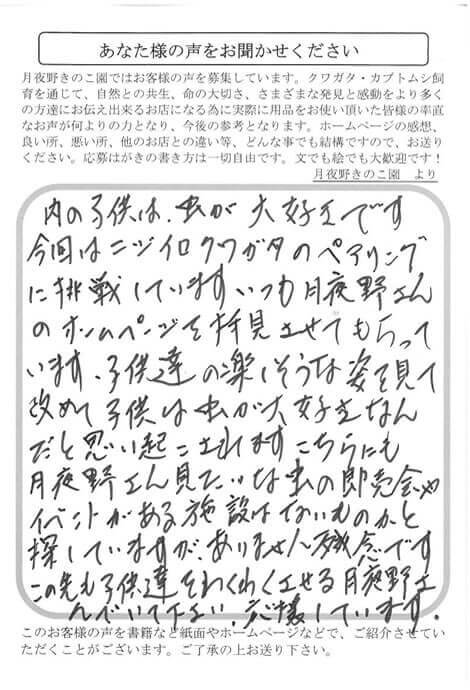 あなた様の声をお聞かせください
月夜野きのこ園ではお客様の声を募集しています。クワガタ・カブトムシ飼
育を通じて、自然との共生、命の大切さ、さまざまな発見と感動をより多く
の方達にお伝え出来るお店になる為に実際に用品をお使い頂いた皆様の率直
なお声が何よりの力となり、今後の参考となります。ホームページの感想、
良い所、悪い所、他のお店との違い等、どんな事でも結構ですので、お送り
ください。応募はがきの書き方は一切自由です。文でも絵でも大歓迎です！
月夜野きのこ園　より
内の子供は、虫が大好きです
今回はニジイロクワガタのペアリング
に挑戦しています いつも月夜野さん
のホームページを拝見させてもらって
います、子供達の楽しそうな姿を見て
改めて子供は虫が大好きなん
だと思い起こされます こちらにも
月夜野さん見たいな虫の即売会や
イベントがある施設はないものかと
探していますが、ありません残念です
この先も子供達をわくわくさせる月夜野さ
んでいて下さい、応懐しています。
このお客様の声を書籍など紙面やホームページなどで、ご紹介させてい
ただくことがございます。ご了承の上お送り下さい。